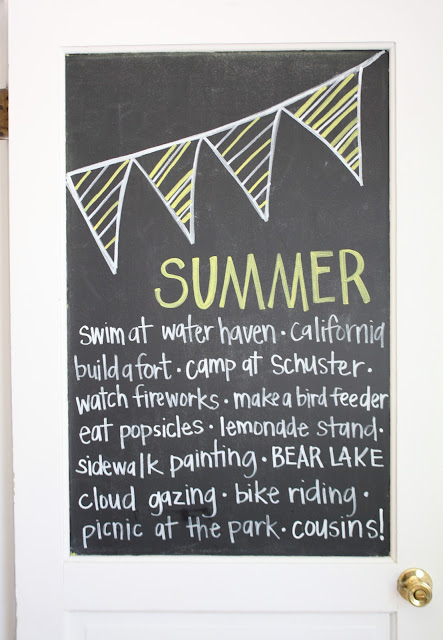 SUMMER
swim at water haven • california
build a fort • camp at schuster •
watch fireworks • make a bird feeder
eat popsicles • lemonade stand •
sidewalk painting • BEAR LAKE
cloud gazing • bike riding •
picnic at the park • cousins!